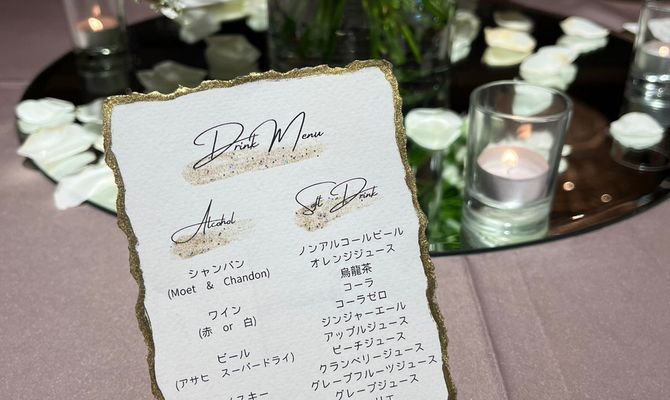 Drink Menu
Alcohol
シャンパン
(Moet & Chandon)
ワイン
(赤 or 白)
ビール
(アサヒ スーパードライ)
Soft Drink
ノンアルコールビール
オレンジジュース
烏龍茶
コーラ
コーラゼロ
ジンジャーエール
アップルジュース
ピーチジュース
クランベリージュース
グレープフルーツジュース
グレープジュース